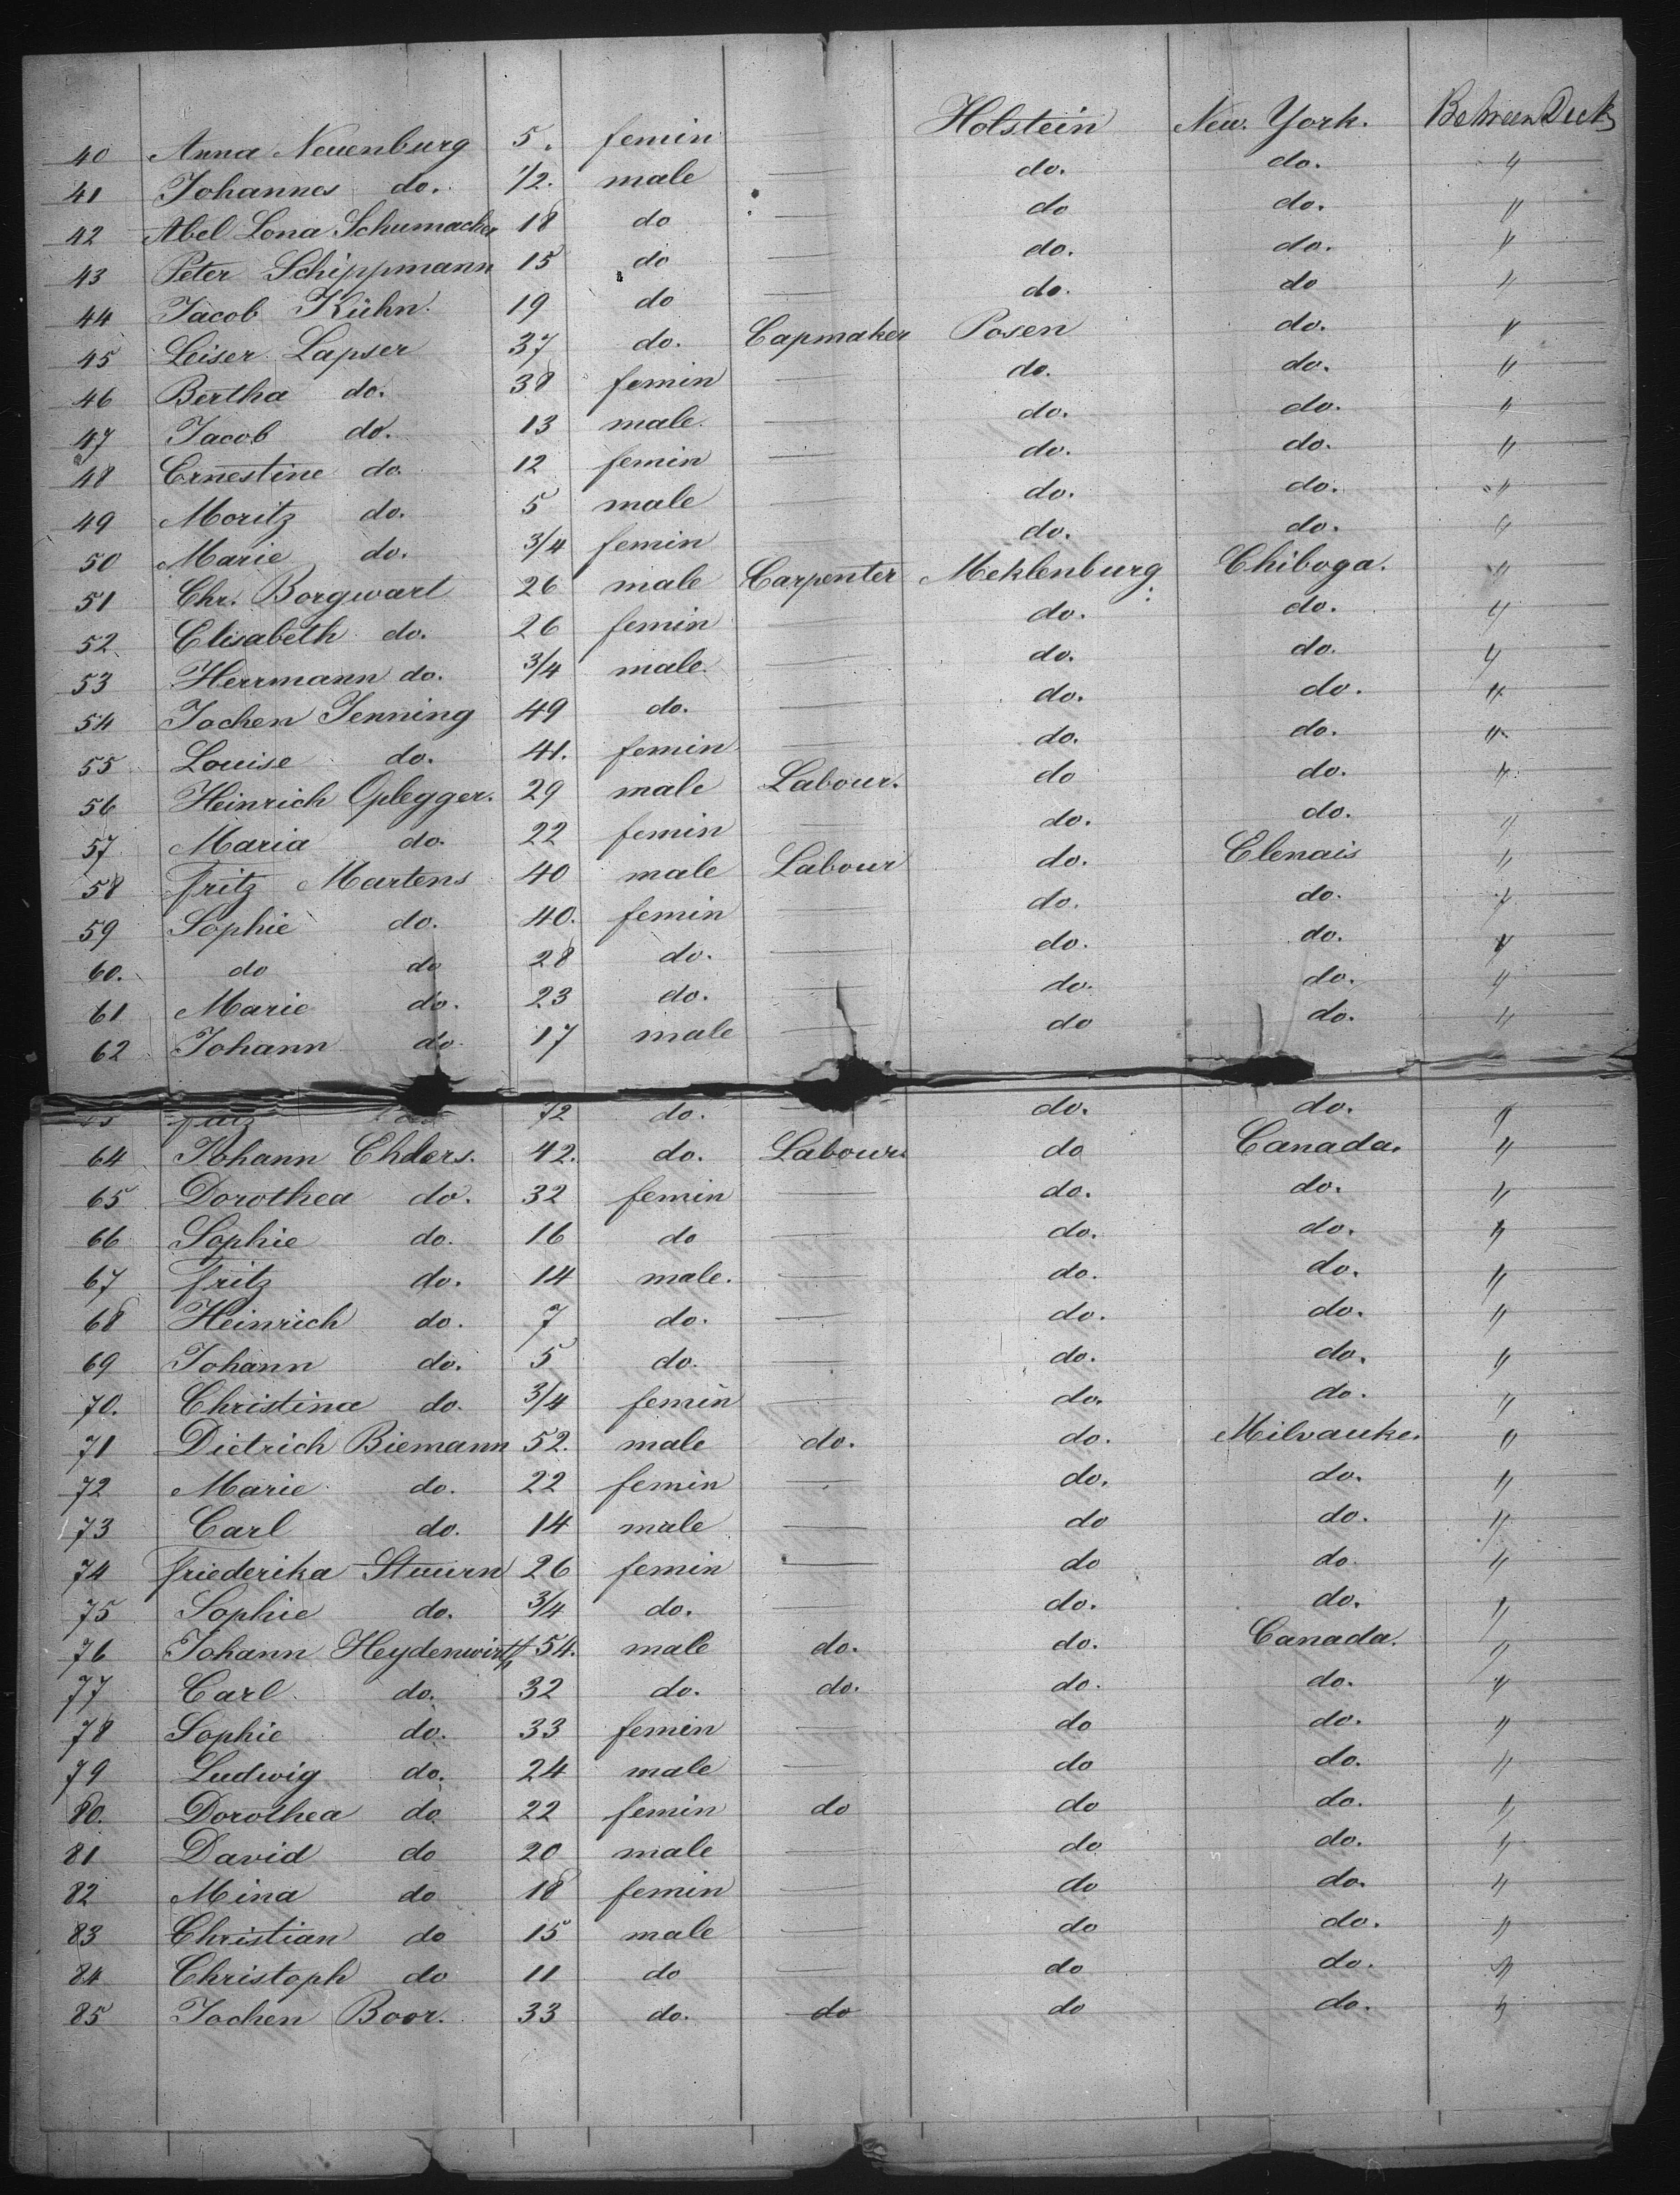 40 Anna Neuenburg 5. femin Holstein New. York. Between Deck
41 Johannes do. 1/2. male — do. do. "
42 Abel Lona Schumacher 18 do — do do. "
43 Peter Schippmann 15 do — do. do. "
44 Jacob Kühn. 19 do — do. do "
45 Leiser Lapser 37 do. Capmaker Posen do. "
46 Bertha do. 38 femin — do. do. "
47 Jacob do. 13 male. — do. do. "
48 Ernestine do. 12 femin — do. do. "
49 Moritz do. 5 male — do. do. "
50 Marie do. 3/4 femin — do. do. "
51 Chr. Borgwart 26 male Carpenter Meklenburg Chiboga. "
52. Elisabeth do. 26 femin — do. do. "
53 Herrmann do. 3/4 male. — do. do. "
54 Jochen Jenning 49 do. — do. do. "
55 Louise do. 41. femin — do. do. "
56 Heinrich Oplegger. 29 male Labour. do do. "
57. Maria do. 22 femin — do. do. "
58 Fritz Martens 40 male Labour do. Elenais "
59 Sophie do. 40. femin — do. do. "
60. do do 28 do. — do. do. "
61 Marie do. 23 do. — do. do. "
62 Johann do. 17 male — do do. "
72 do. — do. do. "
64 Johann Ehders. 42. do. Labour. do Canada. "
65 Dorothea do. 32 femin — do. do. "
66 Sophie do. 16 do — do. do. "
67 Fritz do. 14 male. — do. do. "
68 Heinrich do. 7 do. — do. do. "
69 Johann do. 5 do. — do. do. "
70. Christina do. 3/4 femin — do. do. "
71 Dietrich Biemann 52. male do. do. Milvauke. "
72 Marie do. 22 femin — do. do. "
73 Carl do. 14 male — do do. "
74 Friederika Stuurn 26 femin — do do. "
75 Sophie do. 3/4 do. — do. do. "
76 Johann Heydenwirth 54. male do. do. Canada. "
77 Carl do. 32 do. do. do. do. "
78 Sophie do. 33 femin — do do. "
79 Ludwig do. 24 male — do do. "
80. Dorothea do 22 femin do do do. "
81 David do 20 male — do do. "
82 Mina do 18 femin — do do. "
83 Christian do 15 male — do do. "
84 Christoph do 11 do — do do. "
85 Jochen Boor. 33 do. do do do. "